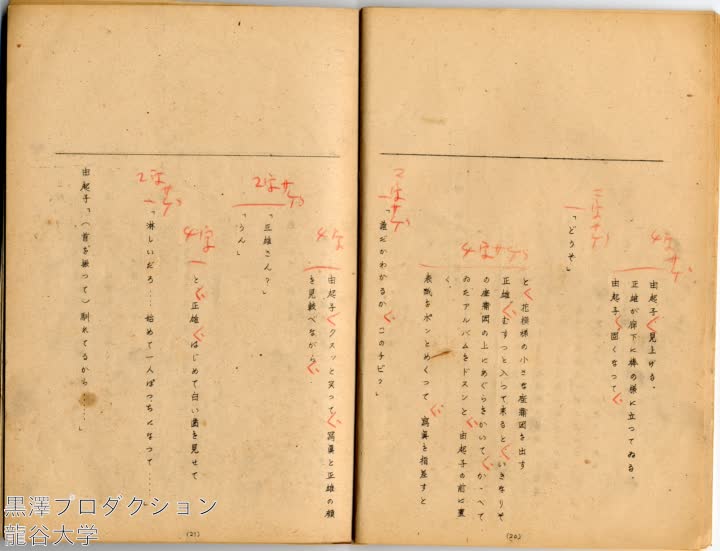 由起子、見上げる。
正雄が廊下に棒の様に立つてゐる。
由起子、固くなつて、
「どうぞ」
と、花模様の小さな座蒲団を出す
正雄、むすつと入つて来ると、いきなりそ
の座蒲団の上にあぐらをかいて、かゝへて
ゐたアルバムをドスンと、由起子の前に置
く。
表紙をポンとめくつて、寫眞を指差すと
「誰だかわかるか、このチビ?」
由起子、クスッと笑つて、寫眞と正雄の顔
を見較べながら、
「正雄さん?」
「うん」
と、正雄、はじめて白い歯を見せて
「淋しいだろ……始めて一人ぽつちになつて……
由起子「(首を振つて)馴れてるから……」
4字サゲ
二字サゲ
4字サゲ
二字サゲ
4字
2字サゲ
4字
2字サゲ
(20)
(21)
黒澤プロダクション
龍谷大学